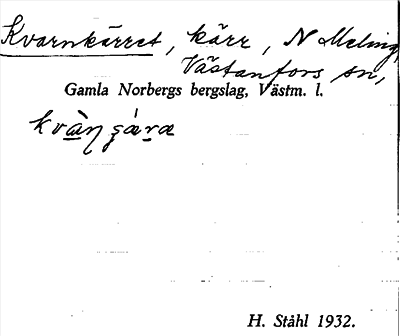 Kvarnkärret, kärr, N Meling,
Västanfors sn,
Gamla Norbergs bergslag, Västm. l.
kvàŋ ʂára
H. Ståhl 1932.